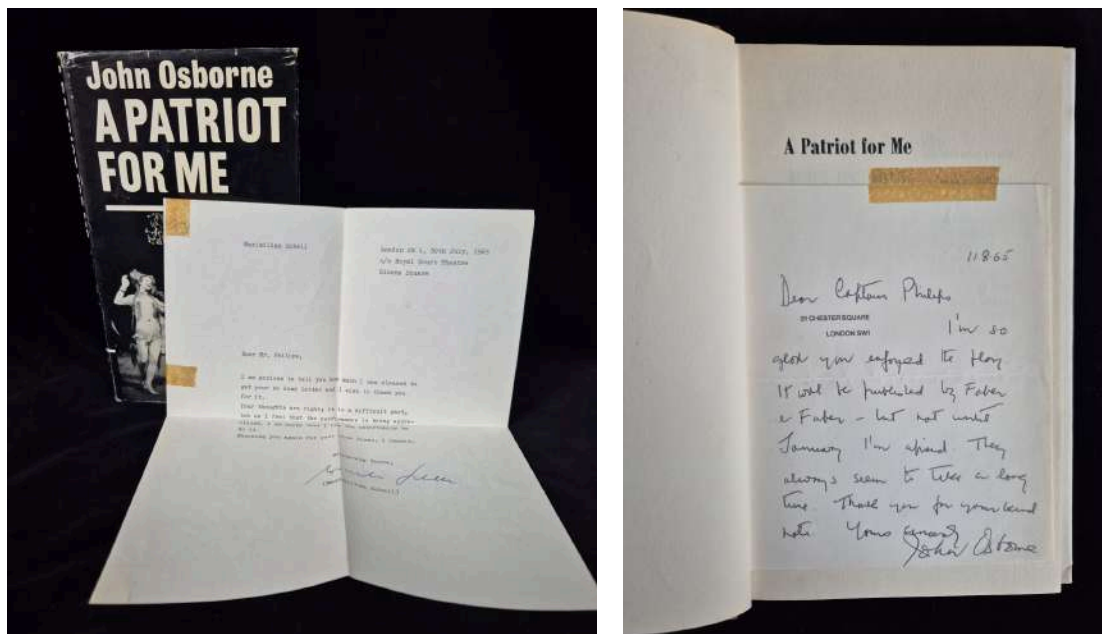 John Osborne
A PATRIOT
FOR ME
Maximilian Schell
London SW 1, 30th July, 1965
c/o Royal Court Theatre
Sloane Square
Dear Mr.
I am anxious to tell you how much I was pleased to
get your so kind letter and I wish to thank you
for it.
Your thoughts are right; it is a difficult part,
but as I feel that the performance is being appre-
do it.
Sincerely yours,
(Maximilian Schell)
A Patriot for Me
11 8.65
Dear Captain Philips
21 CHESTER SQUARE
LONDON SW1
I'm so
glad you enjoyed the play
It will be published by Faber
& Faber – but not until
January I'm afraid. They
always seem to take a long
time. Thank you for your kind
note. Yours sincerely
John Osborne